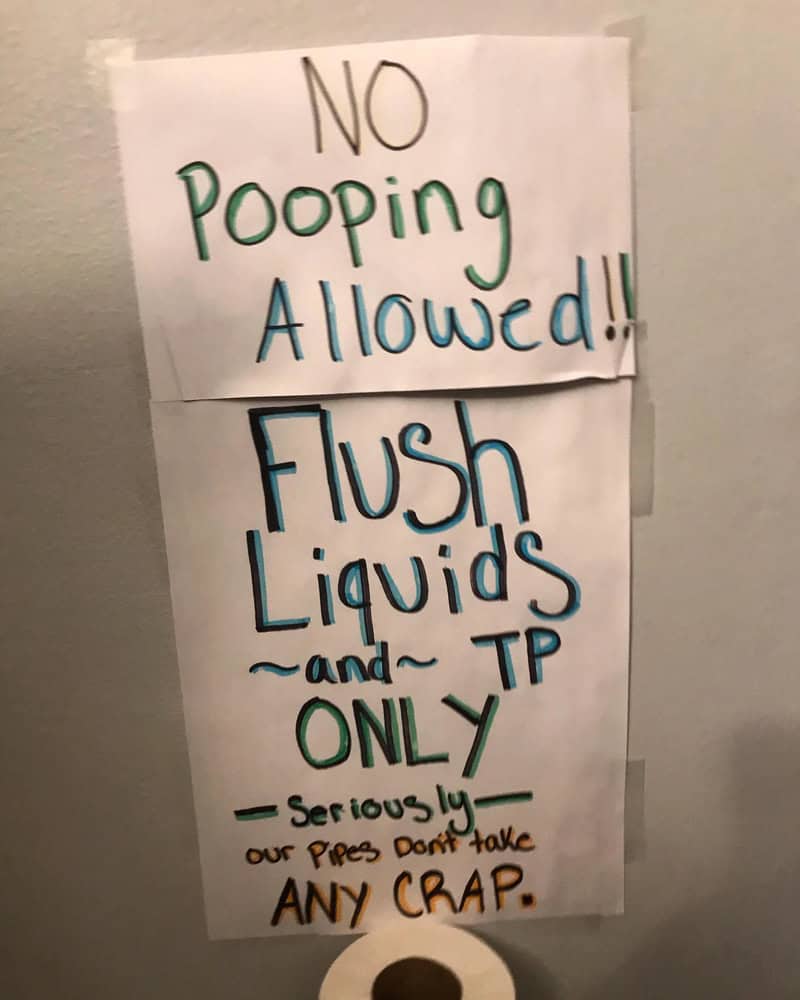 NO
Pooping
Allowed!!
Flush
Liquids
~and~ TP
ONLY
— Seriously —
our Pipes Don't take
ANY CRAP.